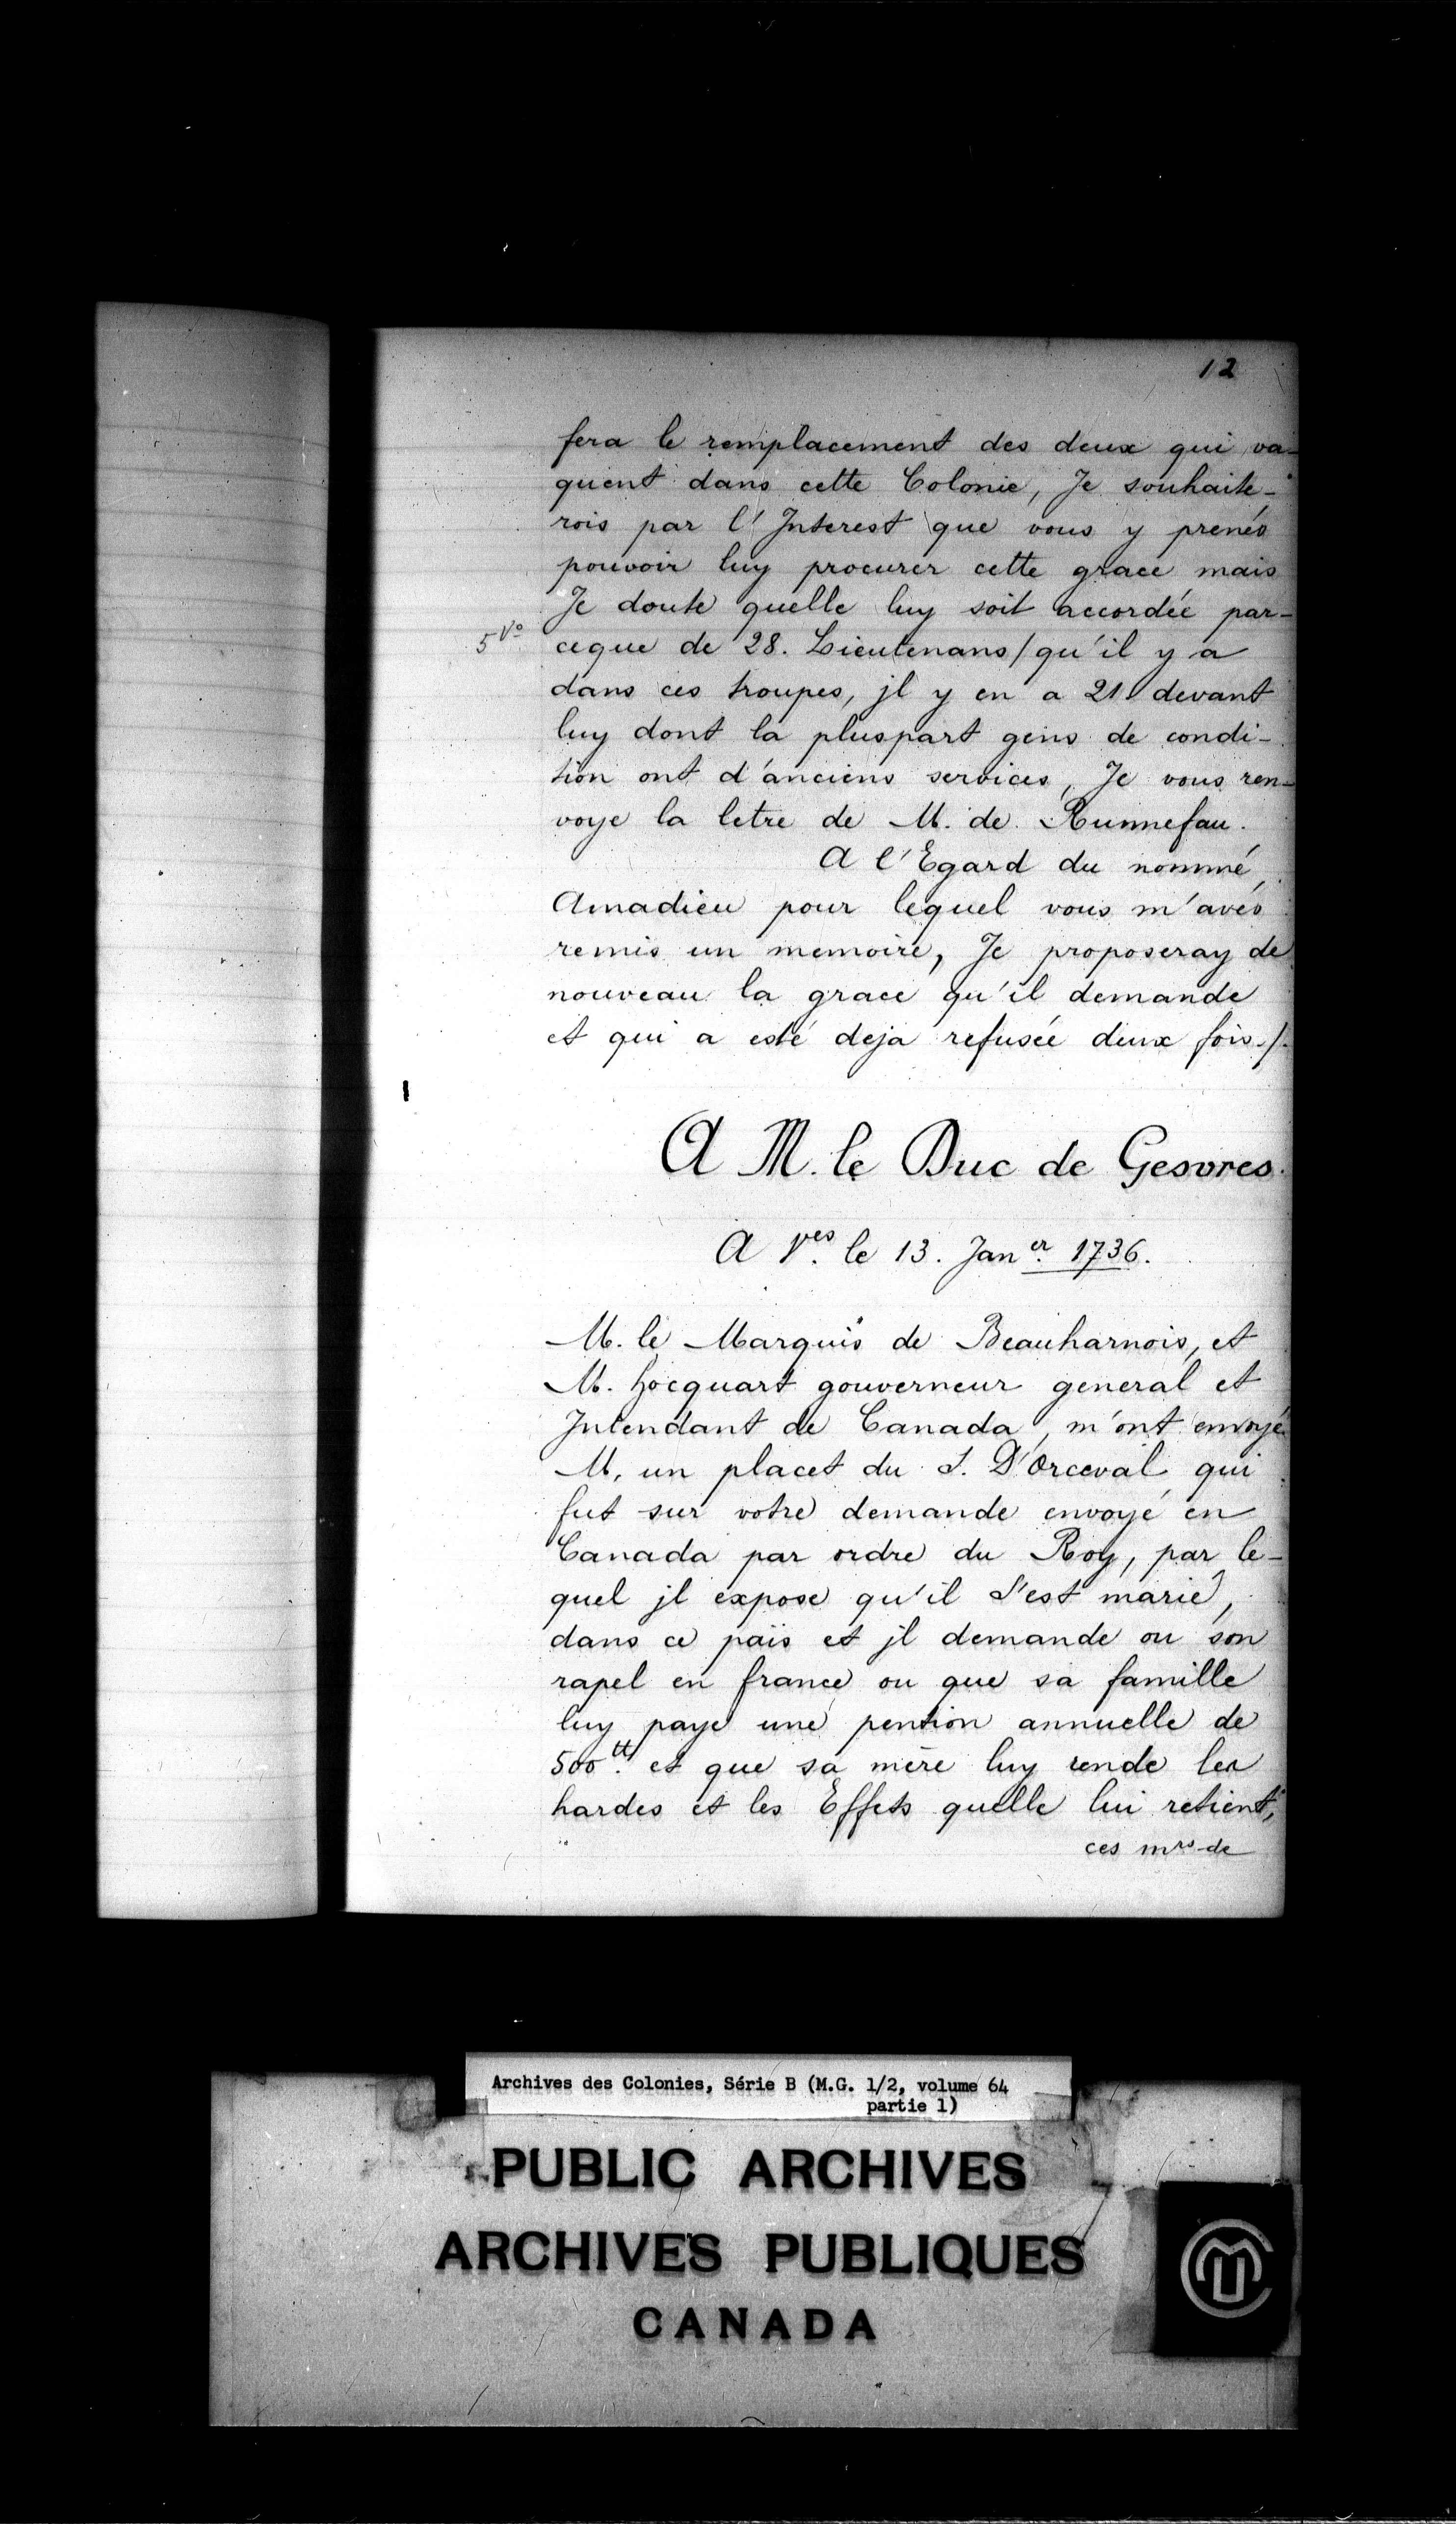 12
fera le remplacement des deux qui va-
quent dans cette Colonie, Je souhaite-
rois par l'Interest que vous y prenés
pouvoir luy procurer cette grace mais
Je doute quelle luy soit accordée par-
5 Vº
ceque de 28. Lieutenans/qu'il y a
dans ces troupes, jl y en a 21. devant
luy dont la pluspart gens de condi-
tion ont d'anciens services, Je vous ren-
voye la letre de M. de Runnefau.
A l'Egard du nommé
Amadieu pour lequel vous m'avés
remis un memoire, Je proposeray de
nouveau la grace qu'il demande
et qui a esté deja refusée deux fois./.
A M. le Duc de Gesvres.
A Ves. le 13. Janer. 1736.
M. le Marquis de Beauharnois, et
M. hocquart gouverneur general et
Intendant de Canada, m'ont envoyé
M. un placet du S. D'Orceval qui
fut sur votre demande envoyé en
Canada par ordre du Roy, par le-
quel jl expose qu'il s'est marié,
dans ce païs et jl demande ou son
rapel en france ou que sa famille
luy paye une pention annuelle de
500tt. et que sa mère luy rende les
hardes et les Effets quelle lui retient,
ces mrs de
Archives des Colonies, Série B (M.G. 1/2, volume 64
partie 1)
PUBLIC ARCHIVES
ARCHIVES PUBLIQUES
CANADA